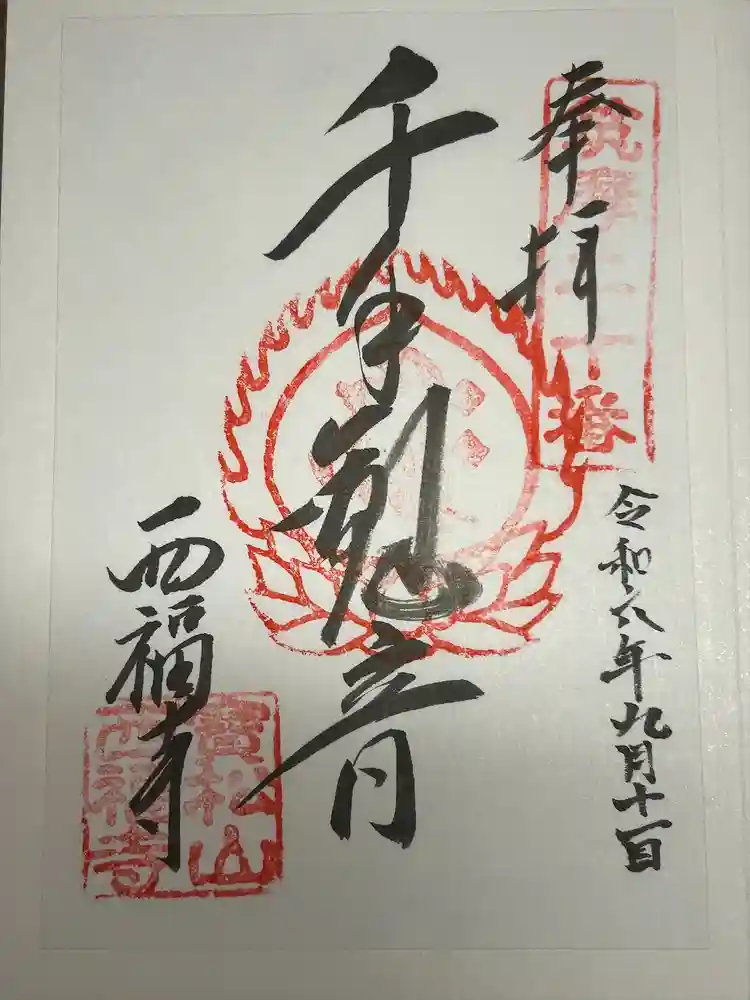 奉拝
令和六年九月十一日
千手観音
西福寺
寳松山
西福寺